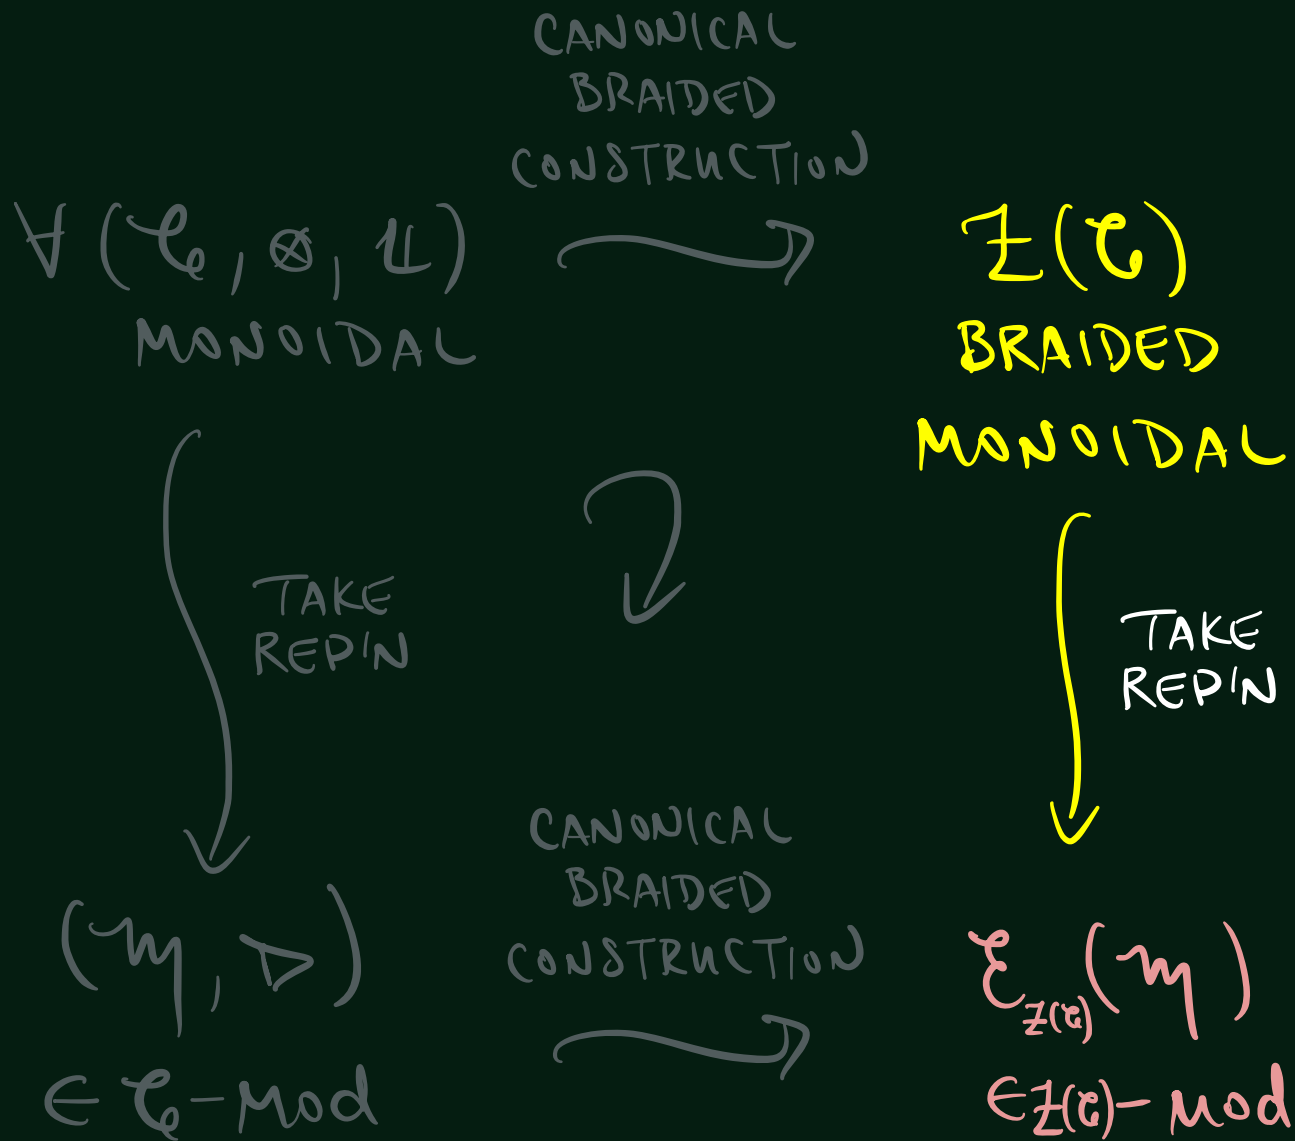 CANONICAL
BRAIDED
CONSTRUCTION
∀ (𝒞, ⊗, 𝟙)
MONOIDAL
Z(𝒞)
BRAIDED
MONOIDAL
TAKE
REP'N
TAKE
REP'N
CANONICAL
BRAIDED
CONSTRUCTION
(ℳ, ▷)
∈ 𝒞-Mod
ℰ_Z(𝒞)(ℳ)
∈ Z(𝒞)-Mod